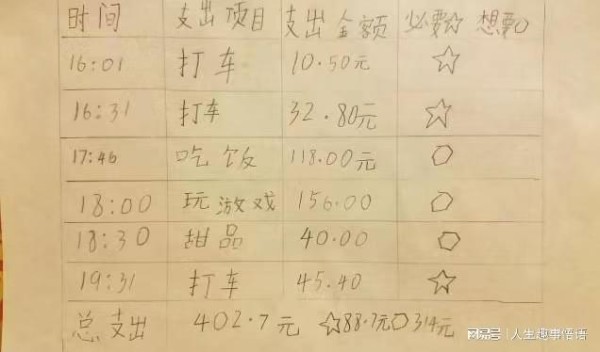 时间 支出项目 支出金额 必要☆ 想要○
16:01 打车 10.50元 ☆
16:31 打车 32.80元 ☆
17:46 吃饭 118.00元 ○
18:00 玩游戏 156.00 ○
18:30 甜品 40.00 ○
19:31 打车 45.40 ☆
总支出 402.7元 ☆88.7元○314元
搜狐号|人生趣事悟语